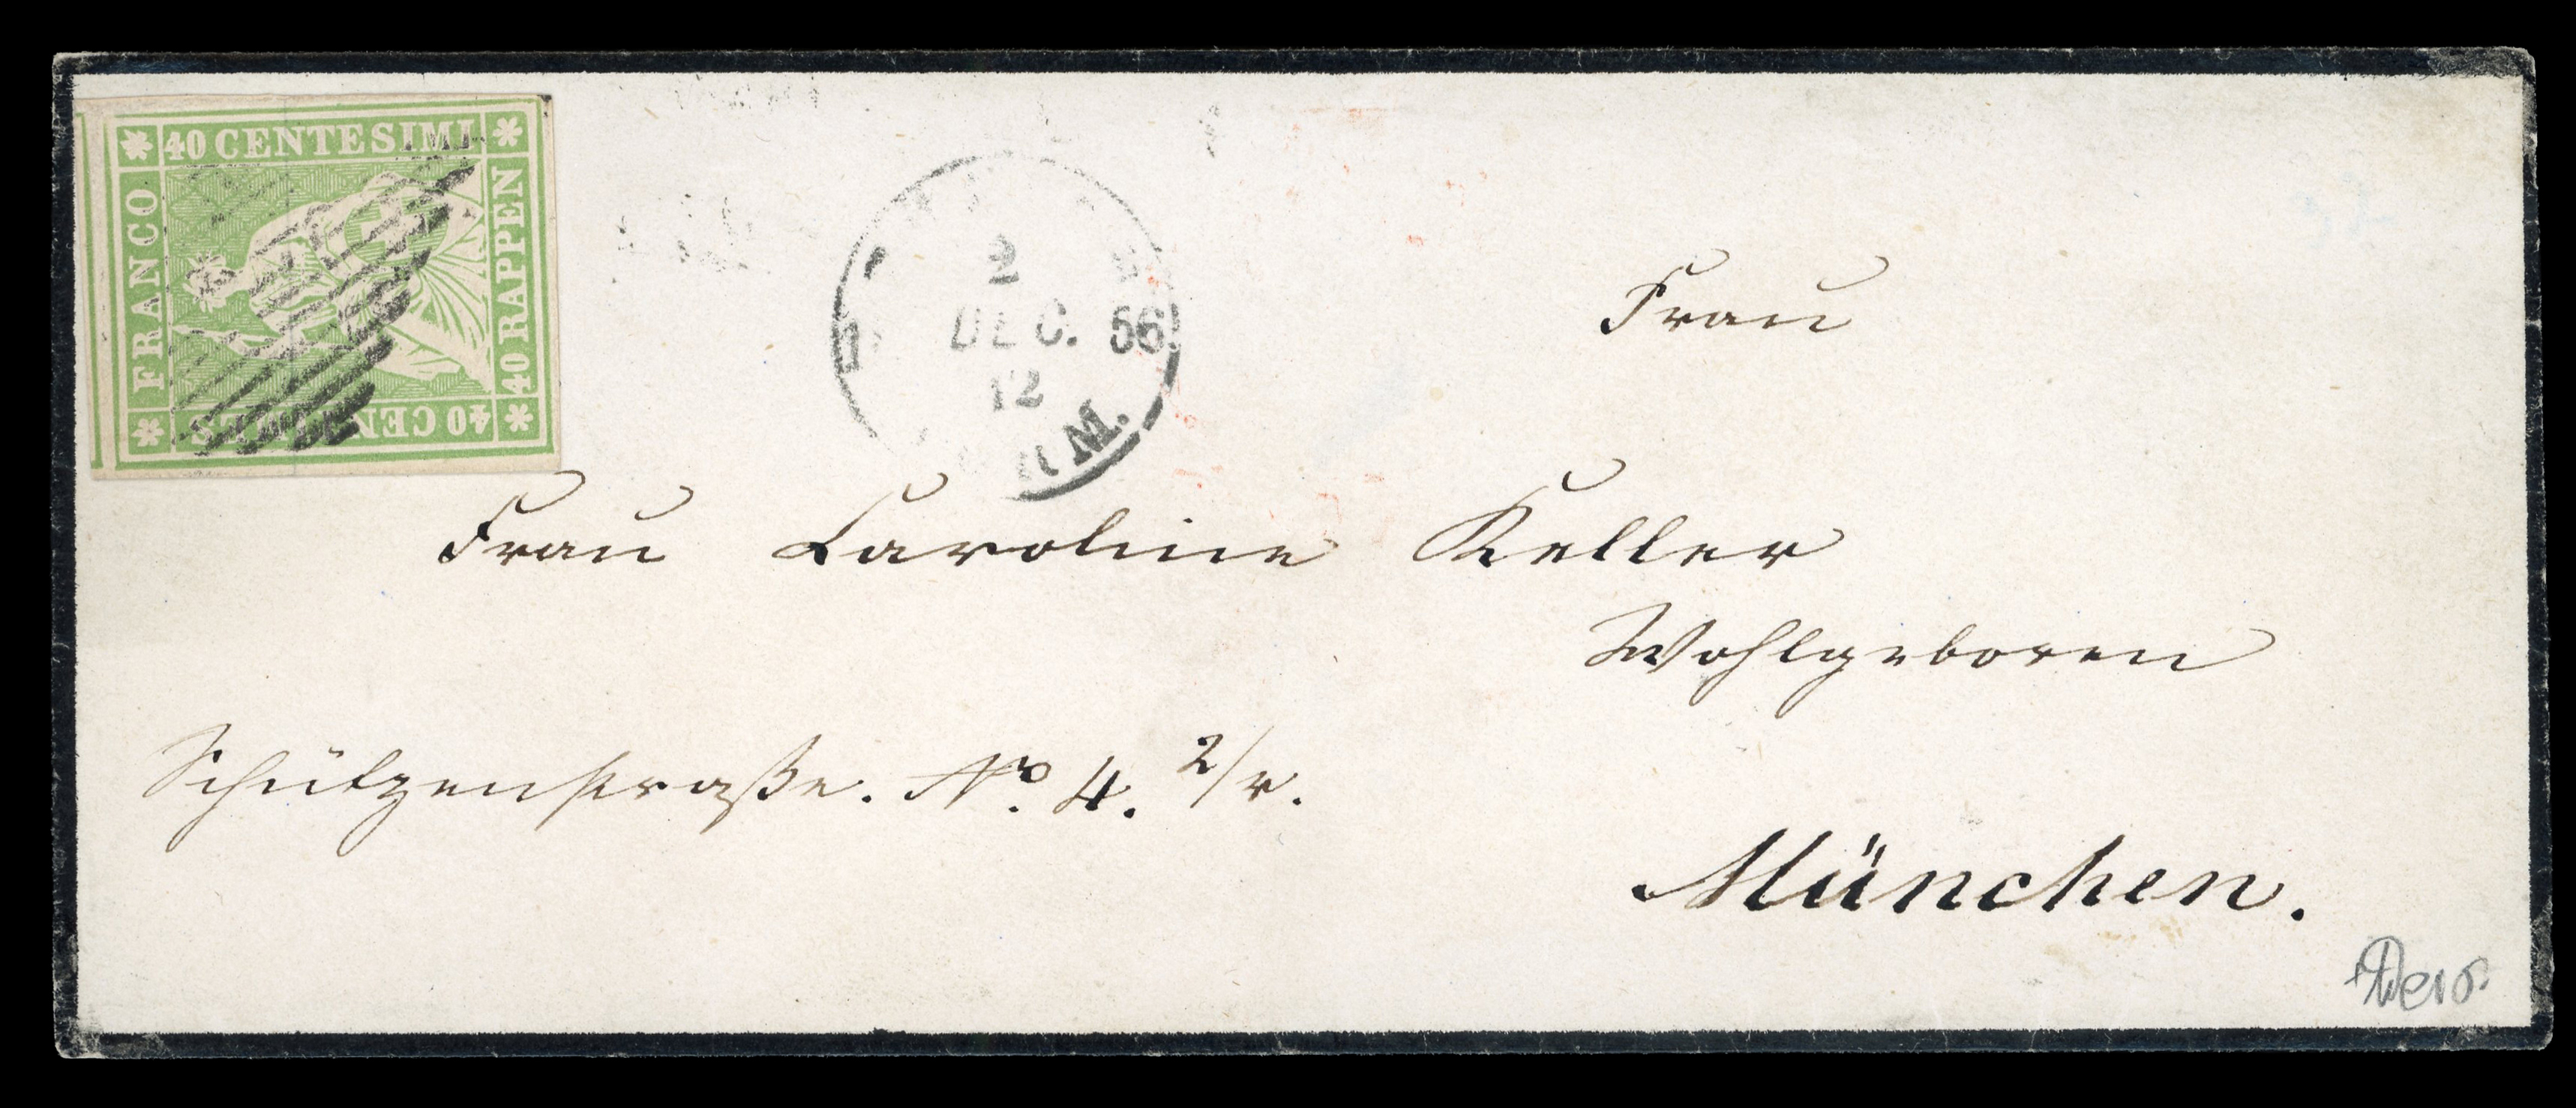 40 CENTESIMI
FRANCO
40 RAPPEN
40 CENTIMES
2
DEC. 56
12
M.
Frau
Frau Caroline Keller
Wohlgeboren
Schützenstraße. No. 4. 2/r.
München.